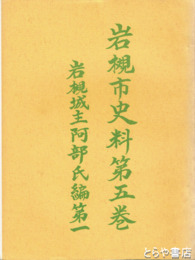 岩槻市史料第五巻
岩槻城主阿部氏編第一
とらや書店